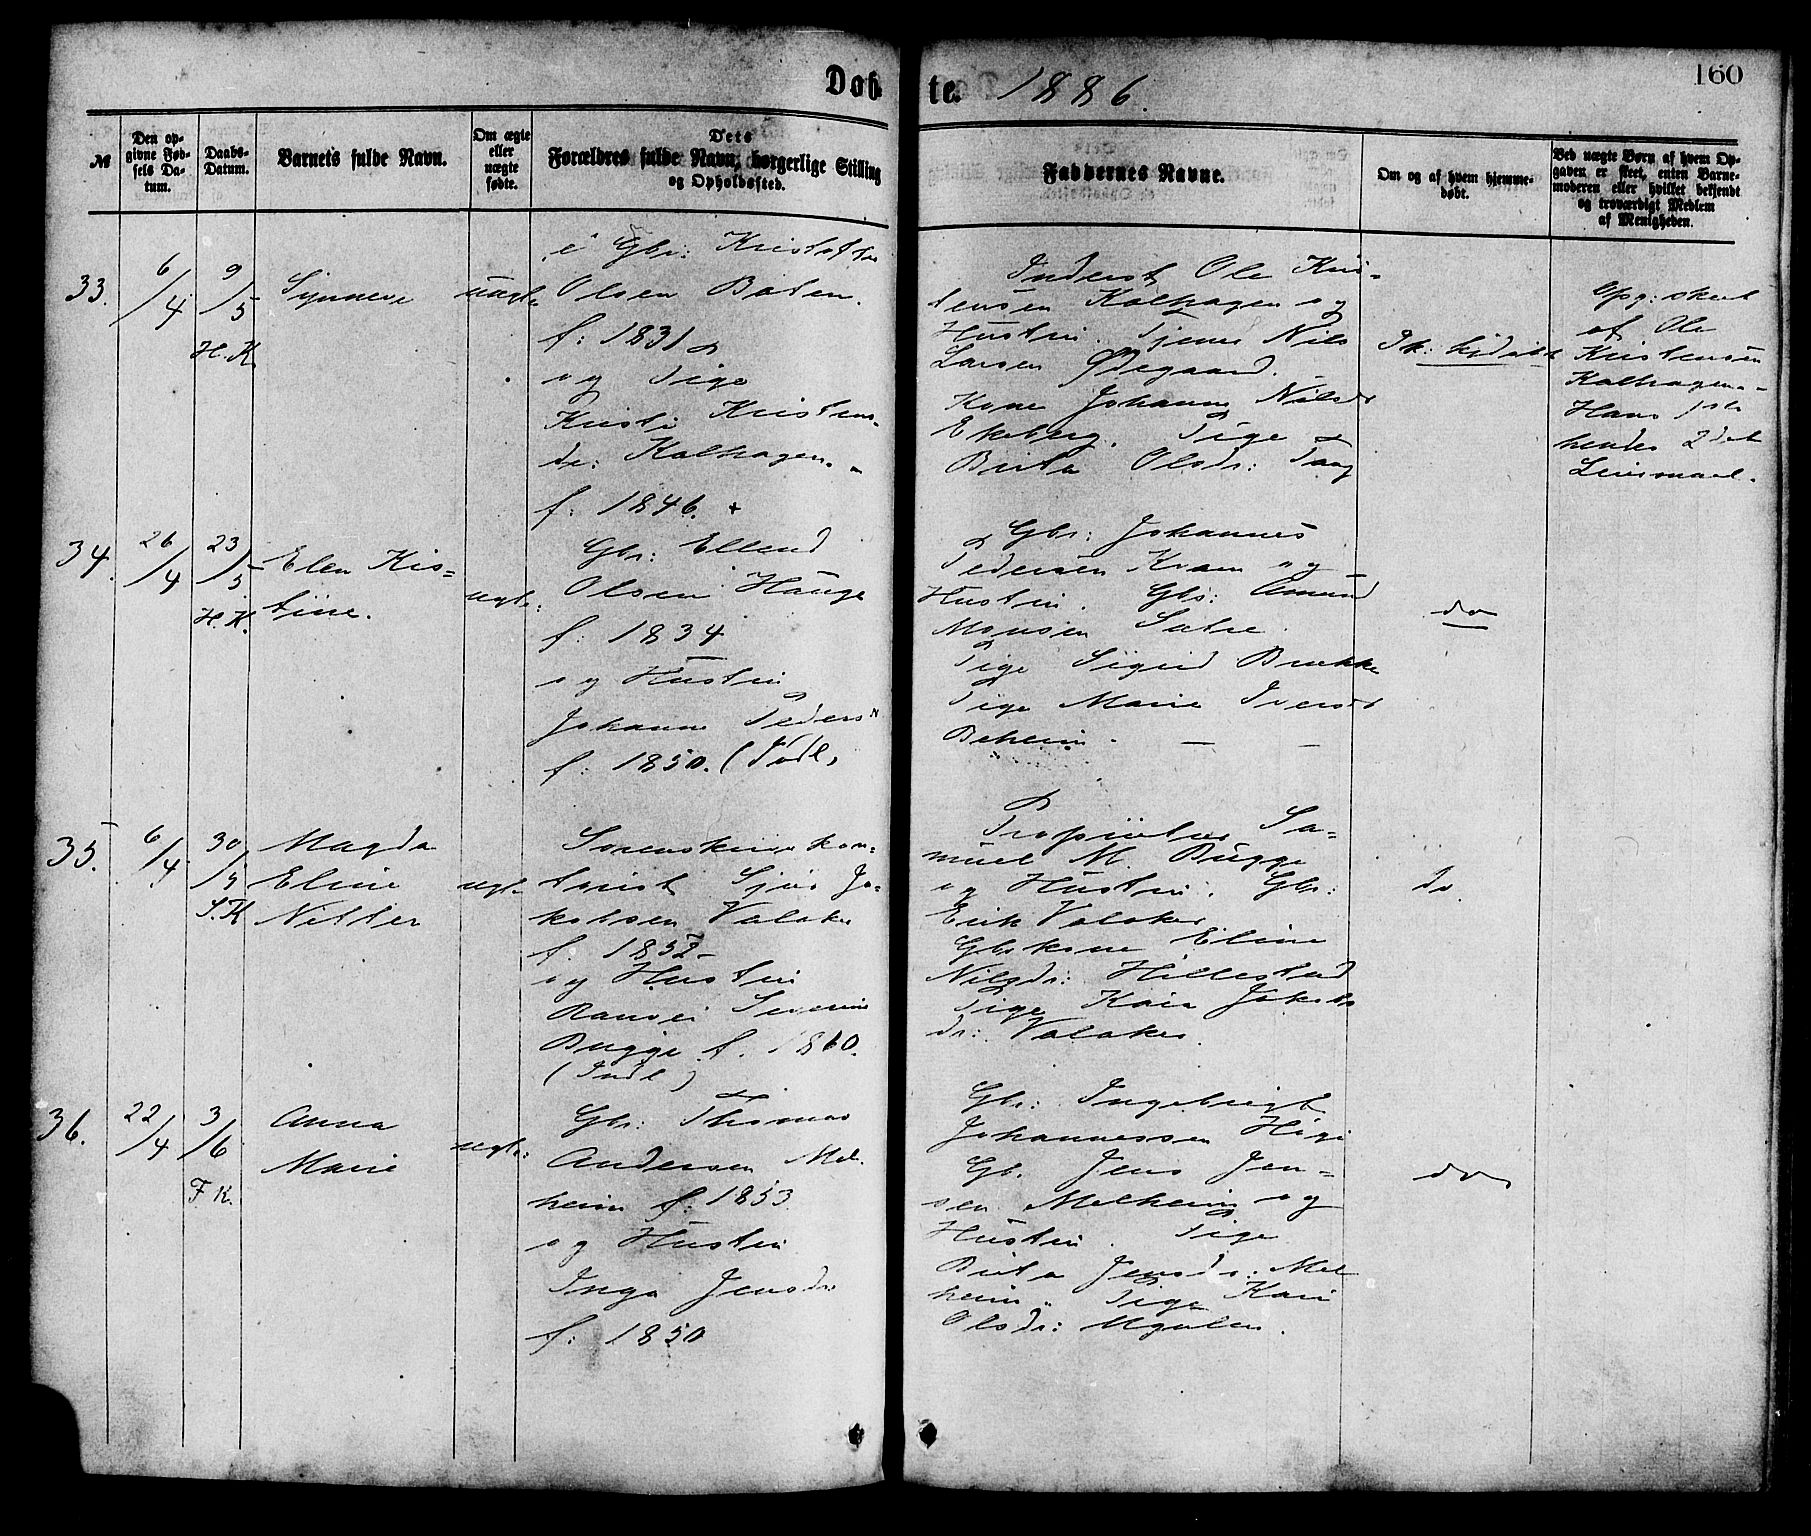 Døb
te. 1886.
160
№
Den op-
givne Fød-
sels Da-
tum.
Daabs-
Datum.
Barnets fulde Navn.
Om ægte
eller
uægte
fødte.
Dets
Forældres fulde Navn, borgerlige Stilling
og Opholdssted.
Faddernes Navne.
Om og af hvem hjemme-
døbt.
Ved uægte Børn af hvem Op-
gaven er skeet, enten Barne-
moderen eller hvilket bekjendt
og troværdigt Medlem
af Menigheden.
33.
6/4
9/5
H. K
Synneve
uægte
i Gbr: Kristoffer
Olsen Baten.
f: 1831
og Pige
Kristi Kristens
dr: Kalhagen.
f: 1846.
Inderst Ole Kris-
tensen Kalhagen og
Hustru. Tjener Nils
Larsen Ødegaard.
Kone Johanna Nilsdr
Ekeberg. Pige
Brita Olsdr:
Opg: skeet
af Ole
Kristensen
Kalhagen.
Hans 1ste
hendes 2det
Leiermaal.
34.
26/4
23/5
H. K.
Elen Kis-
tine.
ægte:
Gbr: Ellend
Olsen Hauge
f: 1834
og Hustru
Johanne Peders
f: 1850. (Indl,
Gbr: Johannes
Pedersen Kvam og
Hustru. Gbr: Amund
Monsen Sætre.
Pige Sigrid Brække
Pige Marie Iversdr
Beheim.
do
35.
6/4
30/5
S. K
Magda
Eline
Nitter
ægte
Sorenskriverkon-
torist Sjur Ja-
kobsen Valaker
f. 1852
og Hustru
Ranvei Severine
Bugge f. 1860.
(Indl)
Proprietær Sa-
muel M. Bugge
og Hustru. Gbr:
Erik Valaker
Gbrkone Eline
Nilsdr: Hillestad
Pige Kari Jakobs
dr: Valaker.
do.
36.
22/4
3/6
F K.
Anna
Marie
ægte:
Gbr: Thomas
Andersen Mel-
heim f: 1853.
og Hustru
Inga Jensdr
f: 1850
Gbr: Ingebrigt
Johannessen
Gbr. Jens Jen-
sen Melheim og
Hustru. Pige
Brita Jensdr: Mel
heim. Pige Kari
Olsdr:
do